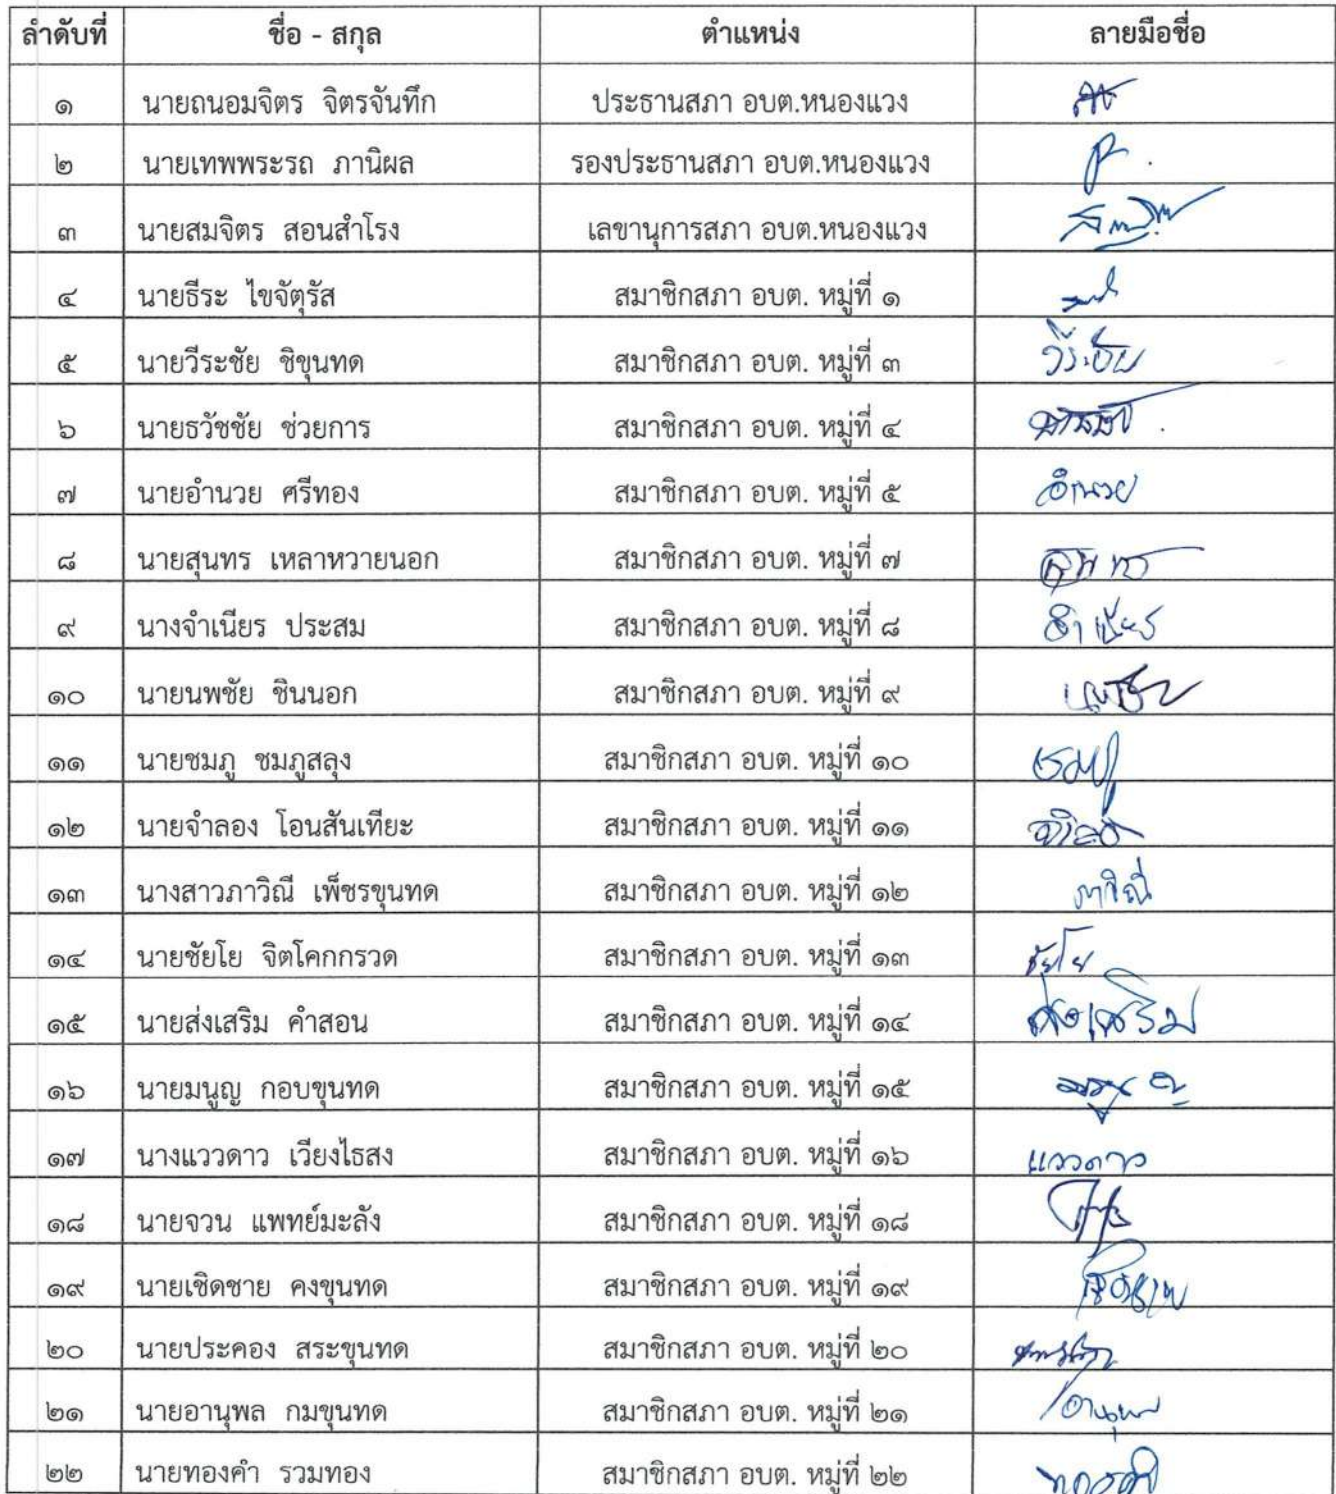 ลำดับที่ ชื่อ - สกุล ตำแหน่ง ลายมือชื่อ
๑ นายถนอมจิตร จิตรจันทึก ประธานสภา อบต.หนองแวง
๒ นายเทพพระรถ ภานิผล รองประธานสภา อบต.หนองแวง
๓ นายสมจิตร สอนสำโรง เลขานุการสภา อบต.หนองแวง
๔ นายธีระ ไขจัตุรัส สมาชิกสภา อบต. หมู่ที่ ๑
๕ นายวีระชัย ชิขุนทด สมาชิกสภา อบต. หมู่ที่ ๓ วีระชัย
๖ นายธวัชชัย ช่วยการ สมาชิกสภา อบต. หมู่ที่ ๔
๗ นายอำนวย ศรีทอง สมาชิกสภา อบต. หมู่ที่ ๕ อำนวย
๘ นายสุนทร เหลาหวายนอก สมาชิกสภา อบต. หมู่ที่ ๗ สุนทร
๙ นางจำเนียร ประสม สมาชิกสภา อบต. หมู่ที่ ๘ จำเนียร
๑๐ นายนพชัย ชินนอก สมาชิกสภา อบต. หมู่ที่ ๙ นพชัย
๑๑ นายชมภู ชมภูสลุง สมาชิกสภา อบต. หมู่ที่ ๑๐ ชมภู
๑๒ นายจำลอง โอนสันเทียะ สมาชิกสภา อบต. หมู่ที่ ๑๑
๑๓ นางสาวภาวิณี เพ็ชรขุนทด สมาชิกสภา อบต. หมู่ที่ ๑๒ ภาวิณี
๑๔ นายชัยโย จิตโคกกรวด สมาชิกสภา อบต. หมู่ที่ ๑๓ ชัยโย
๑๕ นายส่งเสริม คำสอน สมาชิกสภา อบต. หมู่ที่ ๑๔ ส่งเสริม
๑๖ นายมนูญ กอบขุนทด สมาชิกสภา อบต. หมู่ที่ ๑๕ มนูญ
๑๗ นางแววดาว เวียงไธสง สมาชิกสภา อบต. หมู่ที่ ๑๖ แววดาว
๑๘ นายจวน แพทย์มะลัง สมาชิกสภา อบต. หมู่ที่ ๑๘
๑๙ นายเชิดชาย คงขุนทด สมาชิกสภา อบต. หมู่ที่ ๑๙
๒๐ นายประคอง สระขุนทด สมาชิกสภา อบต. หมู่ที่ ๒๐
๒๑ นายอานุพล กมขุนทด สมาชิกสภา อบต. หมู่ที่ ๒๑ อานุพล
๒๒ นายทองคำ รวมทอง สมาชิกสภา อบต. หมู่ที่ ๒๒ ทองคำ